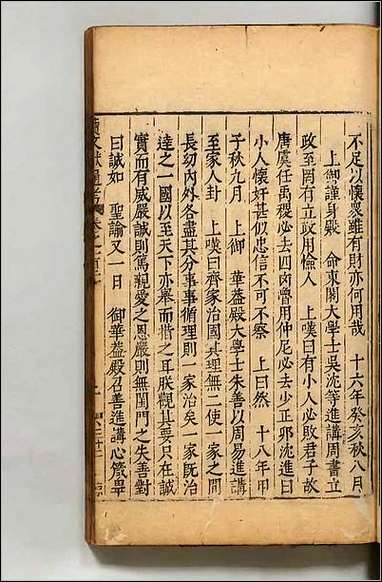 不足以懷衆雖有財亦何用哉　十六年癸亥秋八月
上御謹身殿　命東閣大學士吳沈等進講周書立
政至罔有立政用憸人　上嘆曰有小人必敗君子故
唐虞任禹稷必去四凶魯用仲尼必去少正卯沈進曰
小人懷奸甚似忠信不可不察　上曰然　十八年甲
子秋九月　上御　華蓋殿大學士朱善以周易進講
至家人卦　上嘆曰齊家治國其理無二使一家之間
長幼內外各盡其分事事循理則一家治矣一家既治
達之一國以至天下亦舉而措之耳朕觀其要只在誠
實而有威嚴誠則篤親愛之恩嚴則無閨門之失善對
曰誠如　聖諭又一日　御華蓋殿召善進講心箴畢
續文獻通考